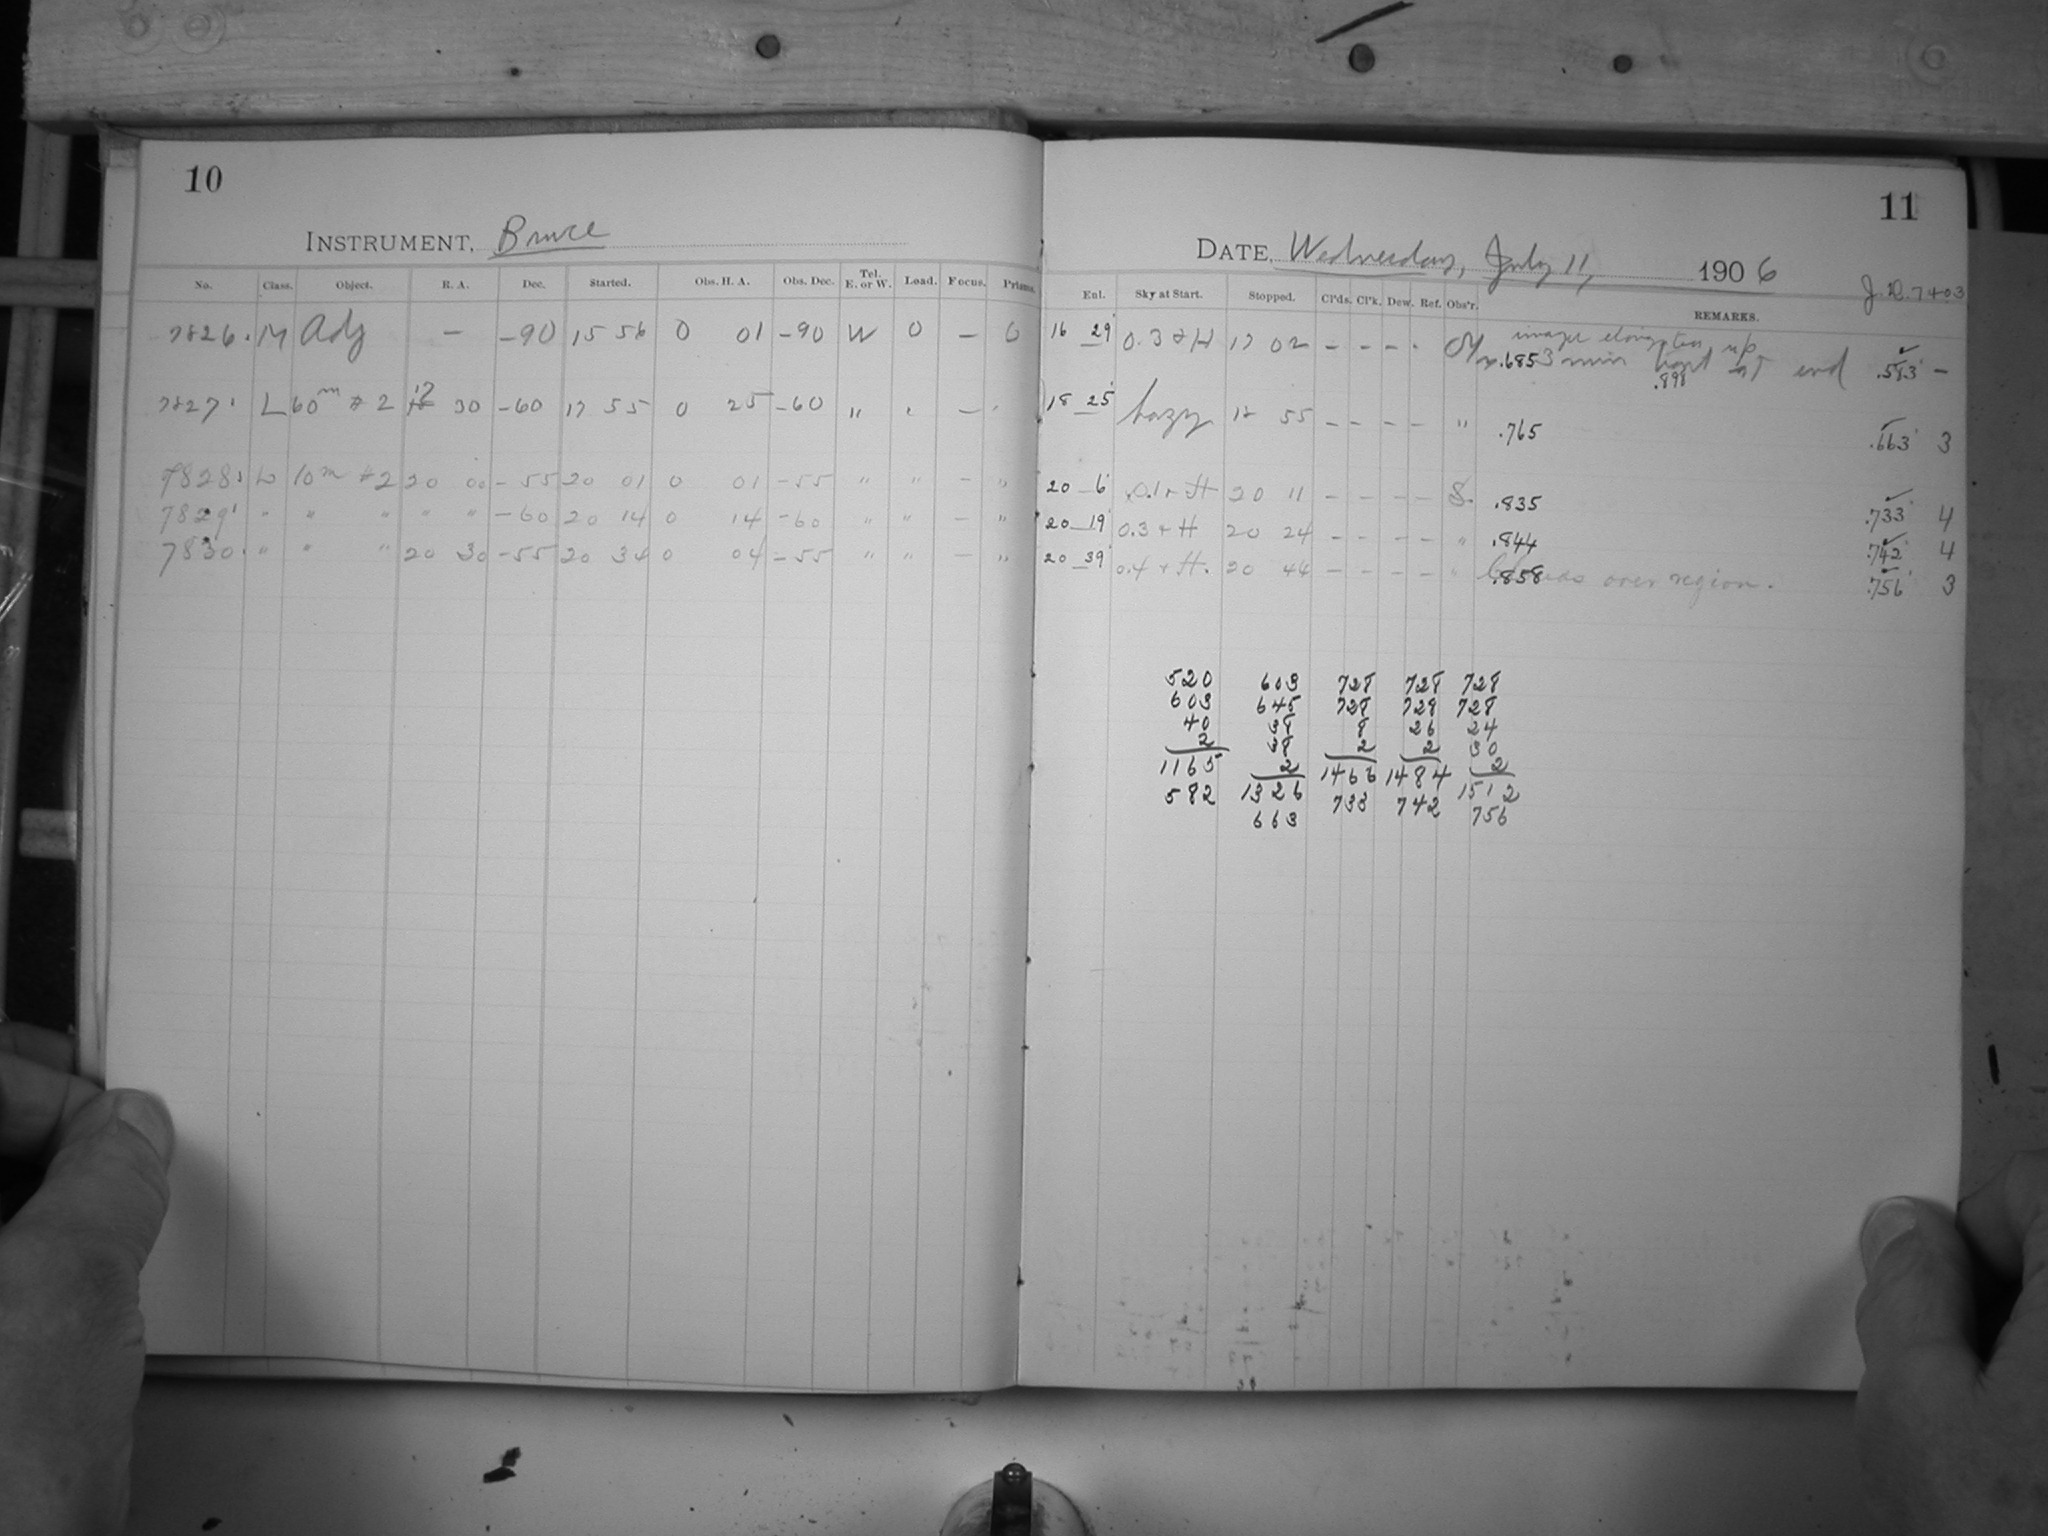 10
INSTRUMENT, Bruce
No. Class. Object. R. A. Dec. Started. Obs. H. A. Obs. Dec. Tel. E. or W. Load. Focus. Prisms.
7826. M Adj – –90 15 56 0 01 –90 W 0 – 0
7827. L 60m #2 17 30 –60 17 55 0 25 –60 " . –
7828. L 10m #2 20 00 –55 20 01 0 01 –55 " " – "
7829. " " " " " –60 20 14 0 14 –60 " " – "
7830. " " " 20 30 –55 20 34 0 04 –55 " " – "
11
DATE, Wednesday, July 11, 1906
J.D. 7403
Ent. Sky at Start. Stopped. Cl'ds. Cl'k. Dew. Ref. Obs'r. REMARKS.
image elongation up
16 29 0.3 + H 17 02 – – – . .685 3 min at end .583 –
.898
18 25 hazy 18 55 – – – – " .765 .663 3
20 6 0.1 + H 20 11 – – – – S. .835 .733 4
20 19 0.3 + H 20 24 – – – – " .844 .742 4
20 39 0.4 + H. 20 44 – – – – " .858 Clouds over region. .756 3
520 603 728 728 728
603 645 728 728 728
40 38 8 26 24
2 38 2 2 30
1165 2 1466 1484 2
582 1326 733 742 1512
663 756